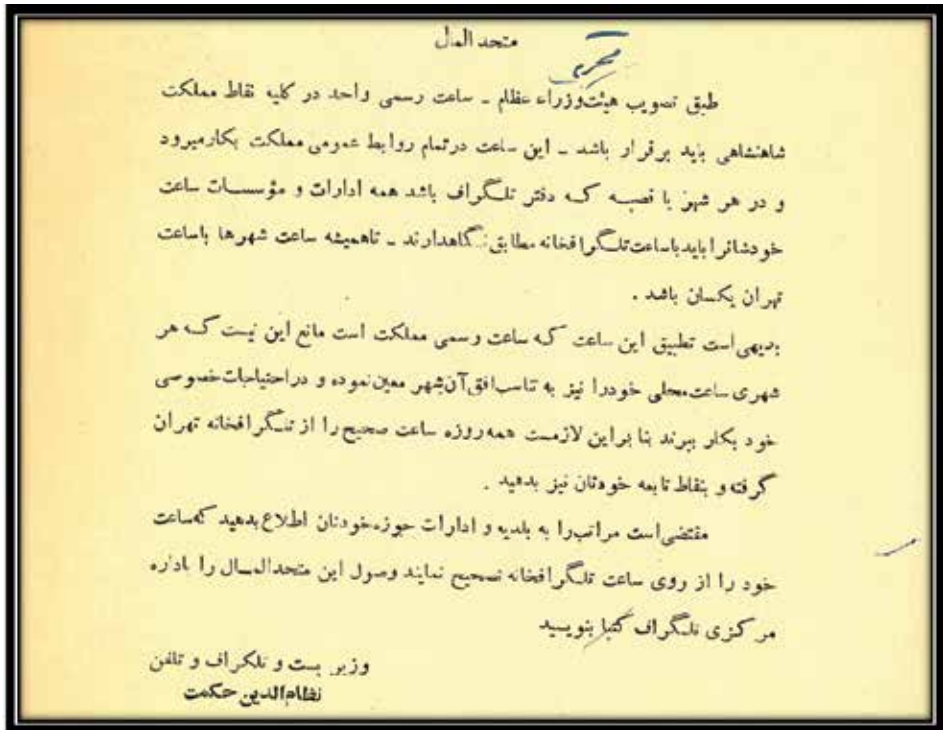 متحد المال
طبق تصویب هیئت وزراء عظام ـ ساعت رسمی واحد در کلیه نقاط مملکت
شاهنشاهی باید برقرار باشد ـ این ساعت در تمام روابط عمومی مملکت بکار میرود
و در هر شهر یا قصبه که دفتر تلگراف باشد همه ادارات و مؤسسات ساعت
خودشانرا باید با ساعت تلگرافخانه مطابق نگاهدارند ـ تا همیشه ساعت شهرها با ساعت
تهران یکسان باشد .
بدیهی است تطبیق این ساعت که ساعت رسمی مملکت است مانع این نیست که هر
شهری ساعت محلی خود را نیز به تناسب افق آن شهر معین نموده و در احتیاجات خصوصی
خود بکار ببرند بنا براین لازمست همه روزه ساعت صحیح را از تلگرافخانه تهران
گرفته و بنقاط تابعه خودتان نیز بدهید .
مقتضی است مراتب را به بلدیه و ادارات حوزه خودتان اطلاع بدهید که ساعت
خود را از روی ساعت تلگرافخانه تصحیح نمایند وصول این متحدالمال را باداره
مرکزی تلگراف کتبا بنویسید
وزیر پست و تلگراف و تلفن
نظام‌الدین حکمت